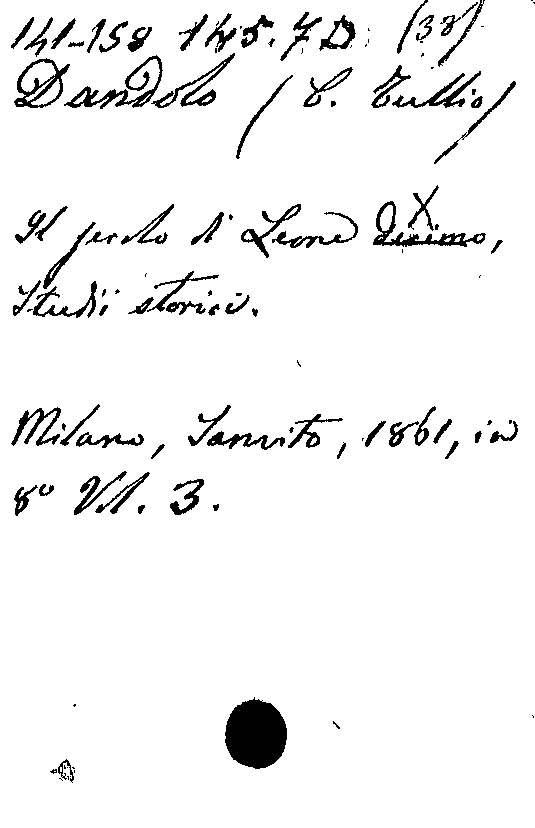 141-158 145.7.D. (38)
Dandolo (C. Tullio)
Il secolo di Leone X decimo,
Studii storici.
Milano, Sanvito, 1861, in
8° Vol. 3.